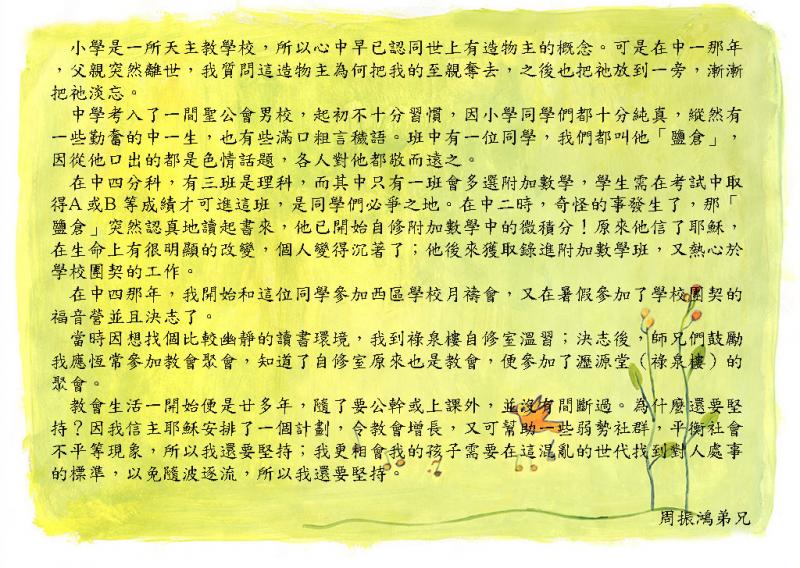 小學是一所天主教學校，所以心中早已認同世上有造物主的概念。可是在中一那年
，父親突然離世，我質問這造物主為何把我的至親奪去，之後也把祂放到一旁，漸漸
把祂淡忘。
中學考入了一間聖公會男校，起初不十分習慣，因小學同學們都十分純真，縱然有
一些勤奮的中一生，也有些滿口粗言穢語。班中有一位同學，我們都叫他「鹽倉」，
因從他口出的都是色情話題，各人對他都敬而遠之。
在中四分科，有三班是理科，而其中只有一班會多選附加數學，學生需在考試中取
得A或B等成績才可進這班，是同學們必爭之地。在中二時，奇怪的事發生了，那「
鹽倉」突然認真地讀起書來，他已開始自修附加數學中的微積分！原來他信了耶穌，
在生命上有很明顯的改變，個人變得沉著了；他後來獲取錄進附加數學班，又熱心於
學校團契的工作。
在中四那年，我開始和這位同學參加西區學校月禱會，又在暑假參加了學校團契的
福音營並且決志了。
當時因想找個比較幽靜的讀書環境，我到祿泉樓自修室溫習；決志後，師兄們鼓勵
我應恆常參加教會聚會，知道了自修室原來也是教會，便參加了瀝源堂（祿泉樓）的
聚會。
教會生活一開始便是廿多年，隨了要公幹或上課外，並沒有間斷過。為什麼還要堅
持？因我信主耶穌安排了一個計劃，令教會增長，又可幫助一些弱勢社群，平衡社會
不平等現象，所以我還要堅持；我更相會我的孩子需要在這混亂的世代找到對人處事
的標準，以免隨波逐流，所以我還要堅持。
周振鴻弟兄